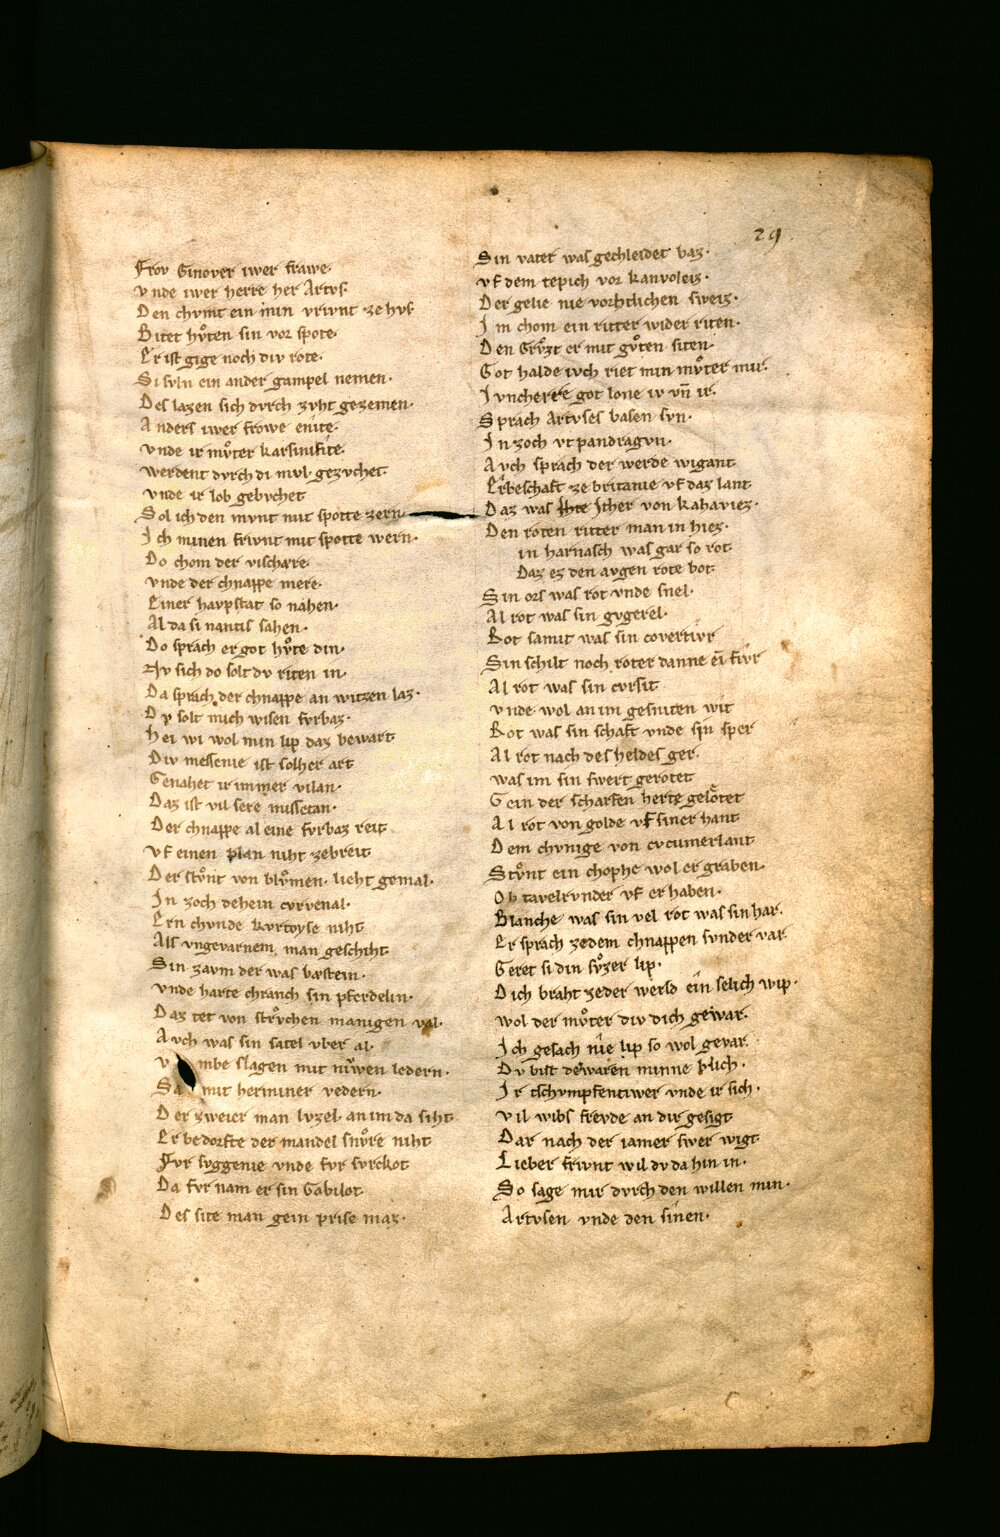 29
Frov Ginover iwer frawe·
vnde iwer herre her Artvs·
Den chvmt ein min vrivnt ze hvs·
Bitet hv̊ten sin vor spote·
Er ist gige noch div rote·
Si svln ein ander gampel nemen·
Des lazen sich dvrch zvht gezemen·
Anders iwer frowe enite·
vnde ir mv̊ter karsinifite·
werdent dvrch di mvl gezvchet·
vnde ir lob gebvchet
Sol ich den mvnt mit spotte zern·
Ich minen frivnt mit spotte wern·
Do chom der vischære·
vnde der chnappe mere·
Einer havpstat so nahen·
Al da si nantis sahen·
Do sprach er got hv̊te din·
Nv sich do solt dv riten in·
Da sprach der chnappe an witzen laz·
Dv solt mich wisen fvrbaz·
hei wi wol min lip daz bewart
Div messenie ist solher art
Genahet ir immer vilan·
Daz ist vil sere missetan·
Der chnappe al eine fvrbaz reit
vf einen plan niht ze breit
Der stv̊nt von blv̊men· lieht gemal·
In zoch dehein cvrvenal·
Ern chvnde kvrtoyse niht
Als vngevarnem man geschiht
Sin zavm der was bæstein·
vnde harte chranch sin pferdelin·
Daz tet von strv̊chen manigen val·
Avch was sin satel vber al·
v mbe slagen mit niwen ledern·
Sa mit herminer vedern·
Der zweier man lvzel· an im da siht
Er bedorfte der mandel snv̊re niht
Fvr svggenie vnde fvr svrckot
Da fvr nam er sin Gabilot·
Des site man gein prise maz·
Sin vater was gechleidet baz·
vf dem tepich vor kanvoleiz·
Der gelie nie vorhtlichen sweiz·
Im chom ein ritter wider riten·
Den Grv̊zt er mit gv̊ten siten·
Got halde ivch riet min mv̊ter mir·
Ivncherre got lone iv vn̄ ir·
Sprach Artvses basen svn·
In zoch vtpandragvn·
Avch sprach der werde wigant
Erbeschaft ze britanie vf daz lant
Daz was Ither von kahaviez·
Den roten ritter man in hiez·
in harnasch was gar so rot·
Daz ez den avgen rote bot
Sin ors was rot vnde snel·
Al rot was sin gvgerel·
Rot samit was sin covertivr
Sin schilt noch roter danne ein fivr
Al rot was sin cvrsit
vnde wol an im gesniten wit
Rot was sin schaft vnde sin sper
Al rot nach des heldes ger·
was im sin swert gerotet
Gein der scharfen herte gelo̊tet
Al rot von golde vf siner hant
Dem chvnige von cvcumerlant
Stv̊nt ein chophe wol ergraben·
Ob tavelrvnder vf erhaben·
Blanche was sin vel rot was sin har·
Er sprach zedem chnappen svnder var
Geret si din sv̊zer lip·
Dich braht zeder werld ein selich wip·
wol der mv̊ter div dich gewar·
Ich gesach nie lip so wol gevar·
Dv bist dewaren minne plich·
Ir tschvmpfentiwer vnde ir sich·
vil wibs frevde an dir gesigt
Dar nach der iamer swer wigt
Lieber frivnt wil dv da hin in·
So sage mir dvrch den willen min·
Artvsen vnde den sinen·